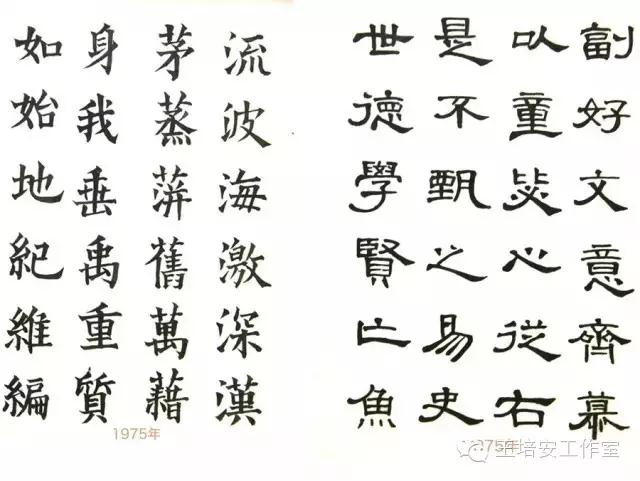 副好文意齊慕
以童毖心從右
是不甄之易史
世德學賢亡魚
1975年
流波海激深漢
茅蒸蓱舊萬藉
身我垂禹重質
如始地紀維編
1975年
王培安工作室